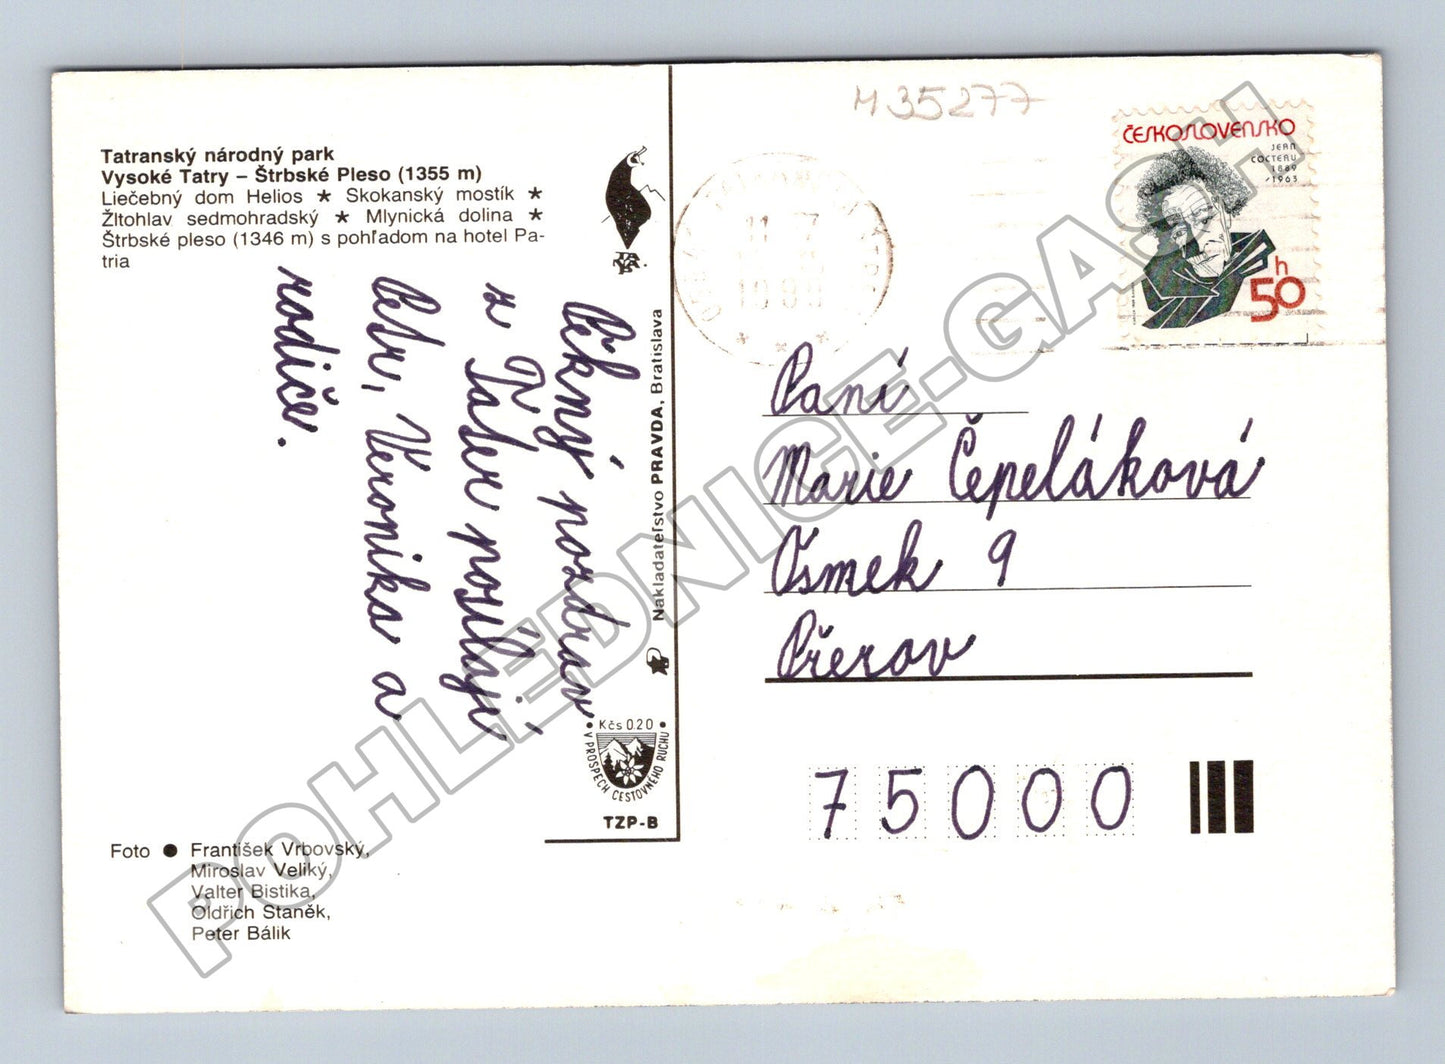 Tatranský národný park
Vysoké Tatry – Štrbské Pleso (1355 m)
Liečebný dom Helios ★ Skokanský mostík ★
Žltohlav sedmohradský ★ Mlynická dolina ★
Štrbské pleso (1346 m) s pohľadom na hotel Pa-
tria
Pěkný pozdrav
z Tater posílají
Petr, Veronika a
rodiče.
Nakladateľstvo PRAVDA, Bratislava
Kčs 0.20
V PROSPECH CESTOVNÉHO RUCHU
TZP-B
Foto ● František Vrbovský,
Miroslav Veliký,
Valter Bistika,
Oldřich Staněk,
Peter Bálik
M35277
ČESKOSLOVENSKO
JEAN
COCTEAU
1889
/1963
50 h
11. 7.
Paní
Marie Čepeláková
Osmek 9
Přerov
75000
POHLEDNICE-GASH